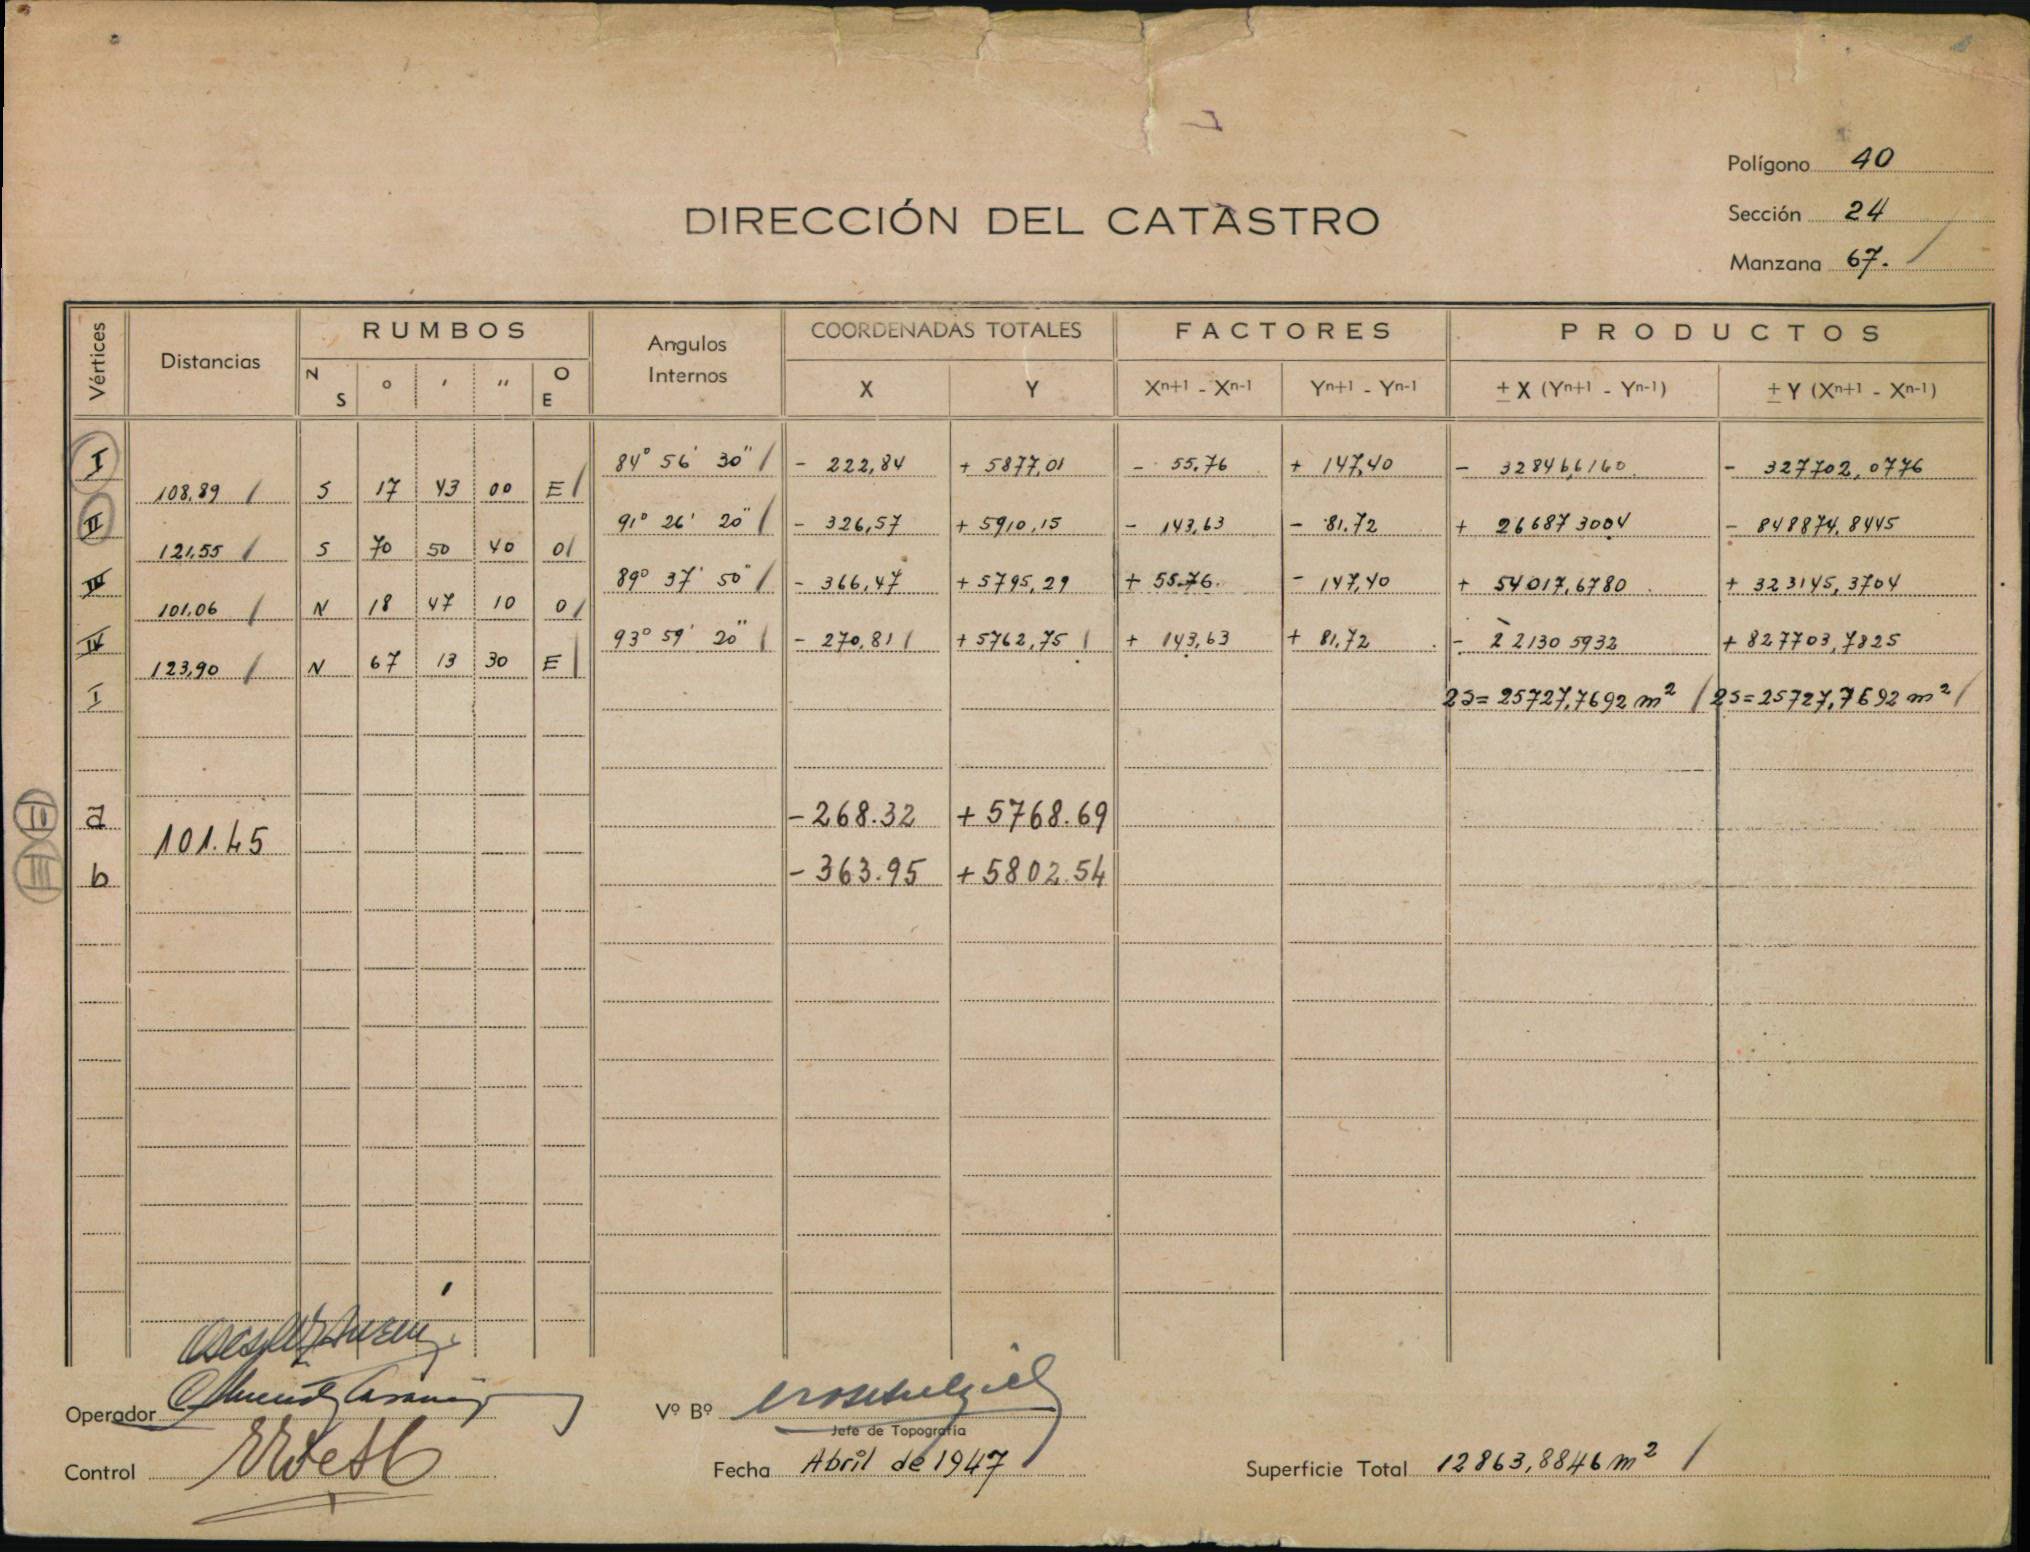 Polígono 40
DIRECCIÓN DEL CATASTRO
Sección 24
Manzana 67.
Vértices Distancias RUMBOS Angulos Internos COORDENADAS TOTALES FACTORES PRODUCTOS
N S ° ' '' O E X Y Xn+1 - Xn-1 Yn+1 - Yn-1 ± X (Yn+1 - Yn-1) ± Y (Xn+1 - Xn-1)
I 84° 56' 30'' - 222,84 + 5877,01 - 55.76 + 147,40 - 328466160 - 327702,0776
108,89 S 17 43 00 E
II 91° 26' 20'' - 326,57 + 5910,15 - 143,63 - 81.72 + 266873004 - 848874.8445
121.55 S 70 50 40 O
III 89° 37' 50'' - 366,47 + 5795,29 + 55.76 - 147,40 + 54017,6780 + 323145,3704
101.06 N 18 47 10 O
IV 93° 59' 20'' - 270,81 + 5762,75 + 143,63 + 81.72 - 22130 5932 + 827703,7825
123,90 N 67 13 30 E
I 2S= 25727,7692 m² 2S=25727,7692 m²
II a -268.32 +5768.69
101.45
III b -363.95 +5802.54
Operador Vº Bº
Jefe de Topografía
Control Fecha Abril de 1947 Superficie Total 12863,8846 m²